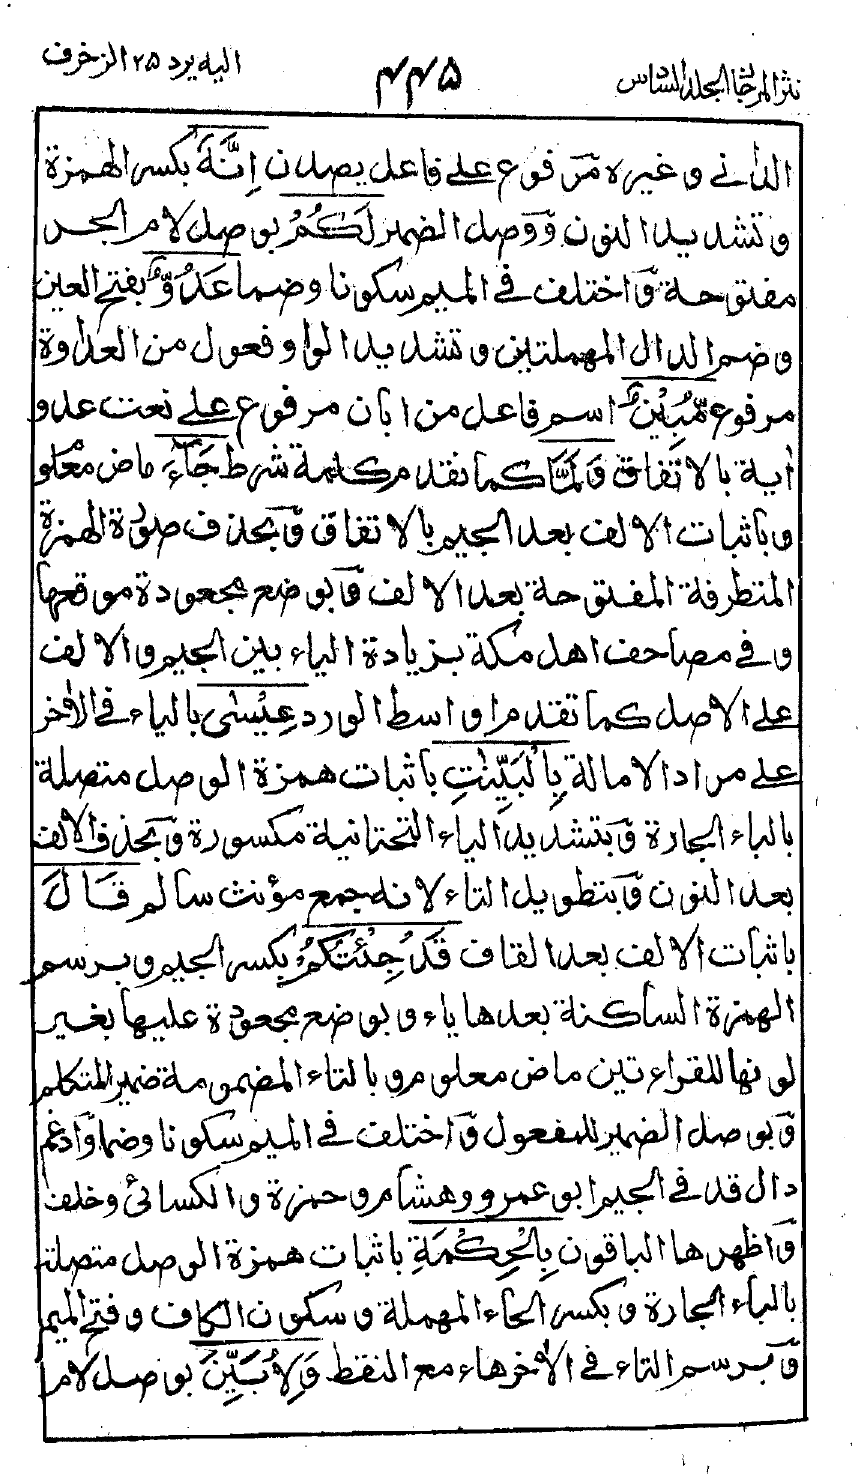 نثر المرجان المجلد السادس
٤٤٥
اليه يرد ٢٥ الزخرف
الداني وغيره مرفوع على فاعل يصدن إِنَّهُ بكسر الهمزة
وتشديد النون ووصل الضمير لَكُمْ بوصل لام الجر
مفتوحة واختلف في الميم سكونا وضما عَدُوٌّ بفتح العين
وضم الدال المهملتين وتشديد الواو فعول من العداوة
مرفوع مُّبِيْنٌ اسم فاعل من ابان مرفوع على نعت عدو
اية بالاتفاق وَلَمَّا كما تقدم كلمة شرط جَآءَ ماض معلو
وباثبات الالف بعد الجيم بالاتفاق وبحذف صورة الهمزة
المتطرفة المفتوحة بعد الالف وبوضع مجعودة موقعها
وفي مصاحف اهل مكة بزيادة الياء بين الجيم والالف
على الاصل كما تقدم اواسط الورد عِيْسٰى بالياء في الاخر
على مراد الامالة بِالْبَيِّنٰتِ باثبات همزة الوصل متصلة
بالباء الجارة وبتشديد الياء التحتانية مكسورة وبحذف الالف
بعد النون وبتطويل التاء لانه جمع مؤنث سالم قَالَ
باثبات الالف بعد القاف قَدْ جِئْتُكُمْ بكسر الجيم وبرسم
الهمزة الساكنة بعدها ياء وبوضع مجعودة عليها بغير
لونها للقراءتين ماض معلوم وبالتاء المضمومة ضمير المتكلم
وبوصل الضمير للمفعول واختلف في الميم سكونا وضما وادغم
دال قد في الجيم ابو عمرو وهشام وحمزة والكسائي وخلف
واظهرها الباقون بِالْحِكْمَةِ باثبات همزة الوصل متصلة
بالباء الجارة وبكسر الحاء المهملة وسكون الكاف وفتح الميم
وبرسم التاء في الاخر هاء مع النقط وَلِاُبَيِّنَ بوصل لام